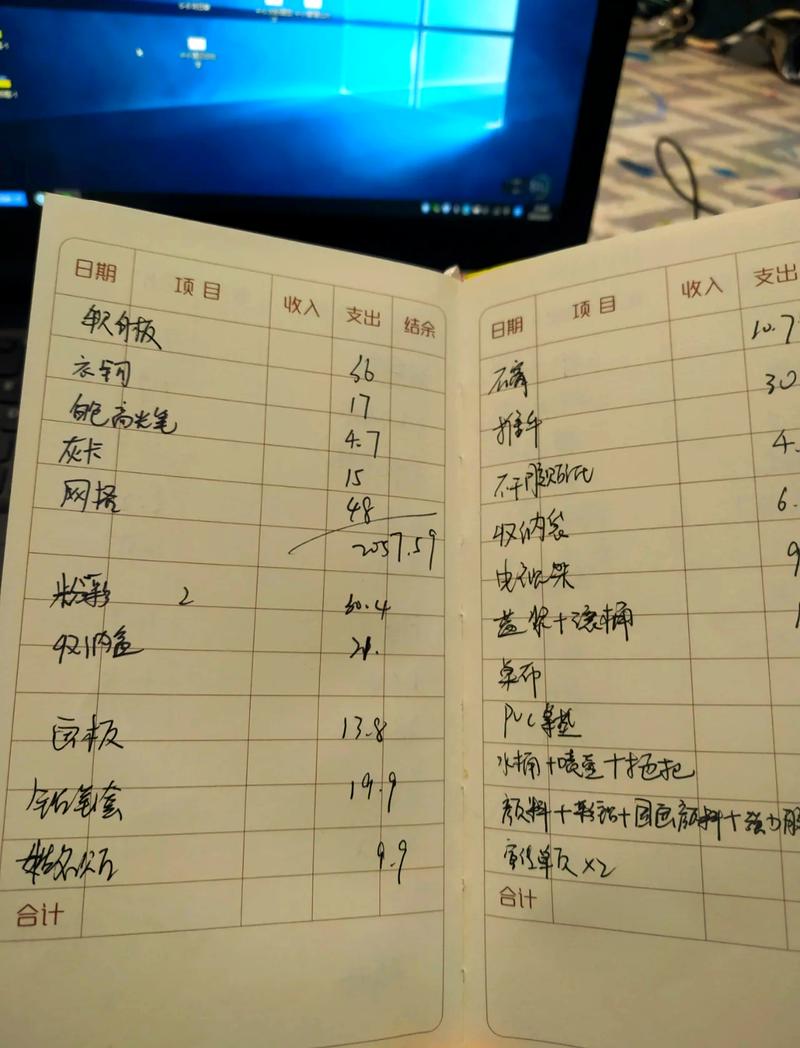 日期 项目 收入 支出 结余
软分板
衣钩 36
白色高光笔 17
灰卡 4.7
网格 15
48
2057.59
粉彩 2 50.4
收纳盒 21.
画板 13.8
铅笔套 19.9
9.9
合计
日期 项目 收入 支出
10.7
石膏 30
推车
不干胶贴纸 4.
收纳袋 6.
9
盖 桶
桌布
PVC桌垫
水桶+喷壶+拖把
颜料+彩铅+国画颜料+强力胶
宣传单页 ×2
合计